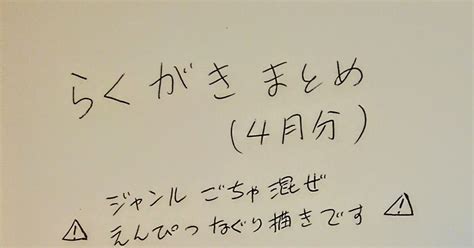 らくがきまとめ
(4月分)
ジャンルごちゃ混ぜ
⚠えんぴつなぐり描きです⚠